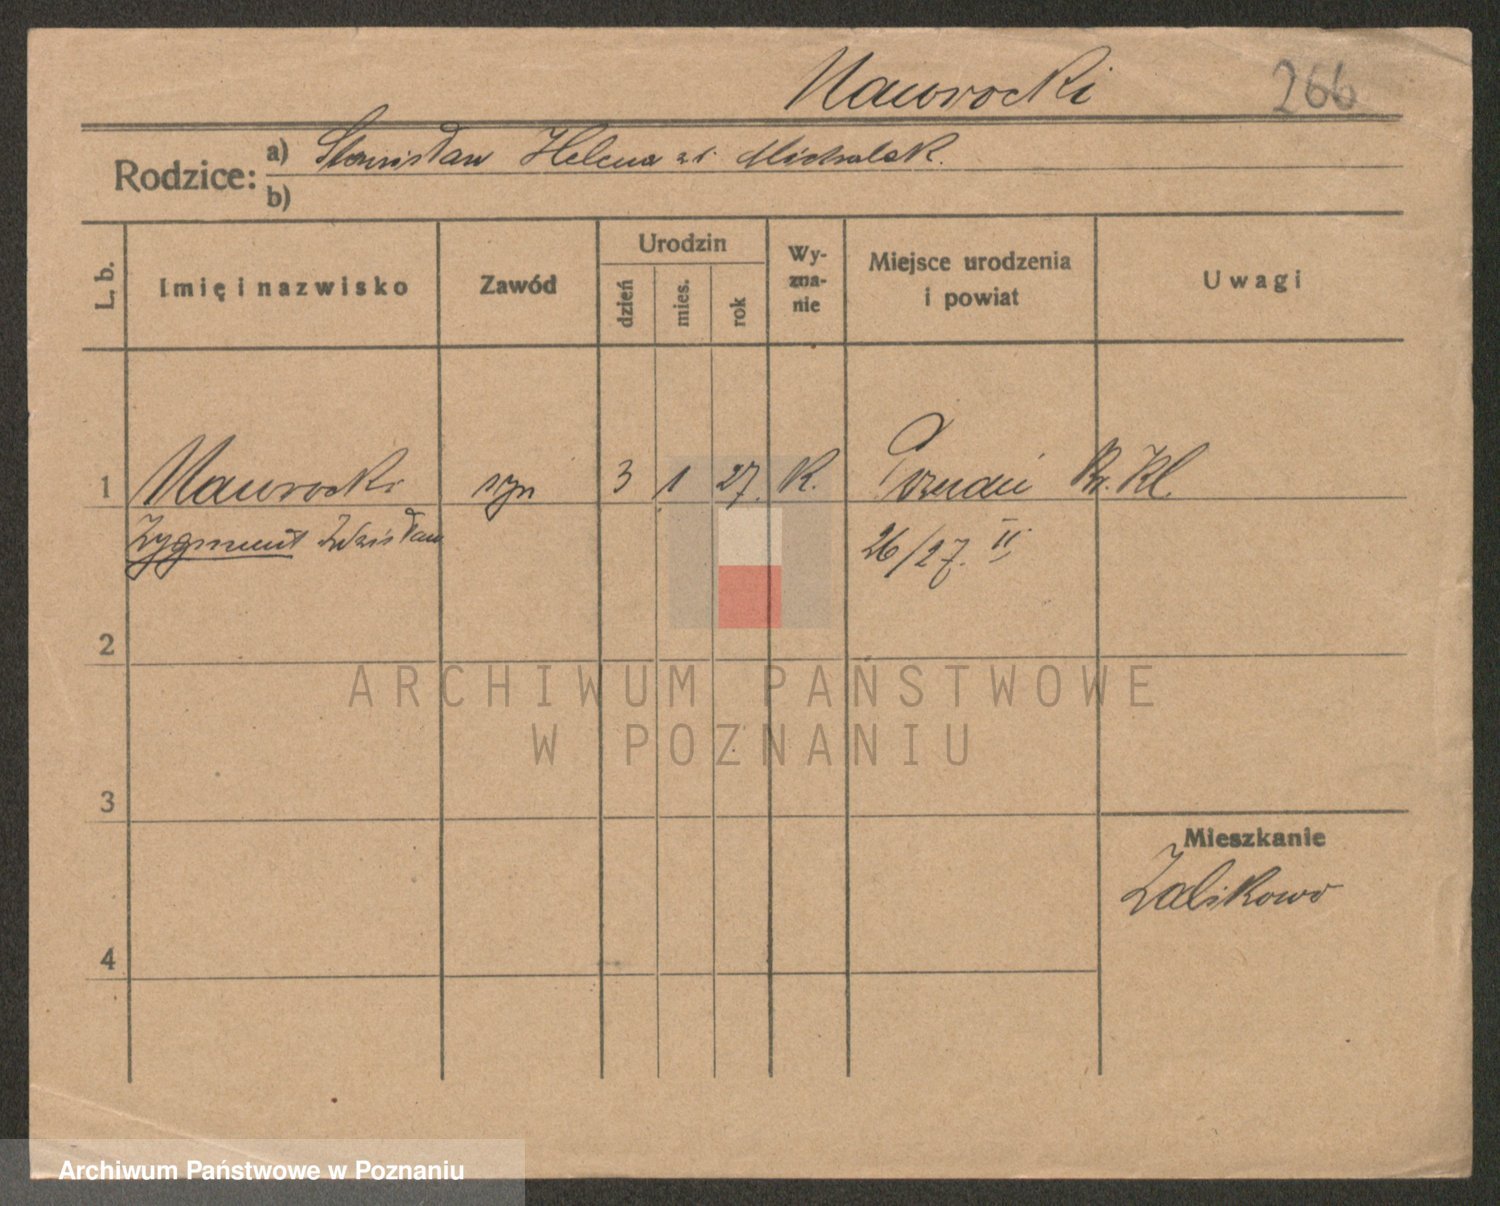 Nawrocki 266
Rodzice: a) Stanisław Helena zd. Michalak.
b)
L. b. Imię i nazwisko Zawód Urodzin dzień mies. rok Wy-zna-nie Miejsce urodzenia i powiat Uwagi
1 Nawrocki syn 3 1 27. K. Poznań Kr. Kl.
Zygmunt Zdzisław 26/27. II
2
3
Mieszkanie
Żabikowo
4
ARCHIWUM PAŃSTWOWE
W POZNANIU
Archiwum Państwowe w Poznaniu